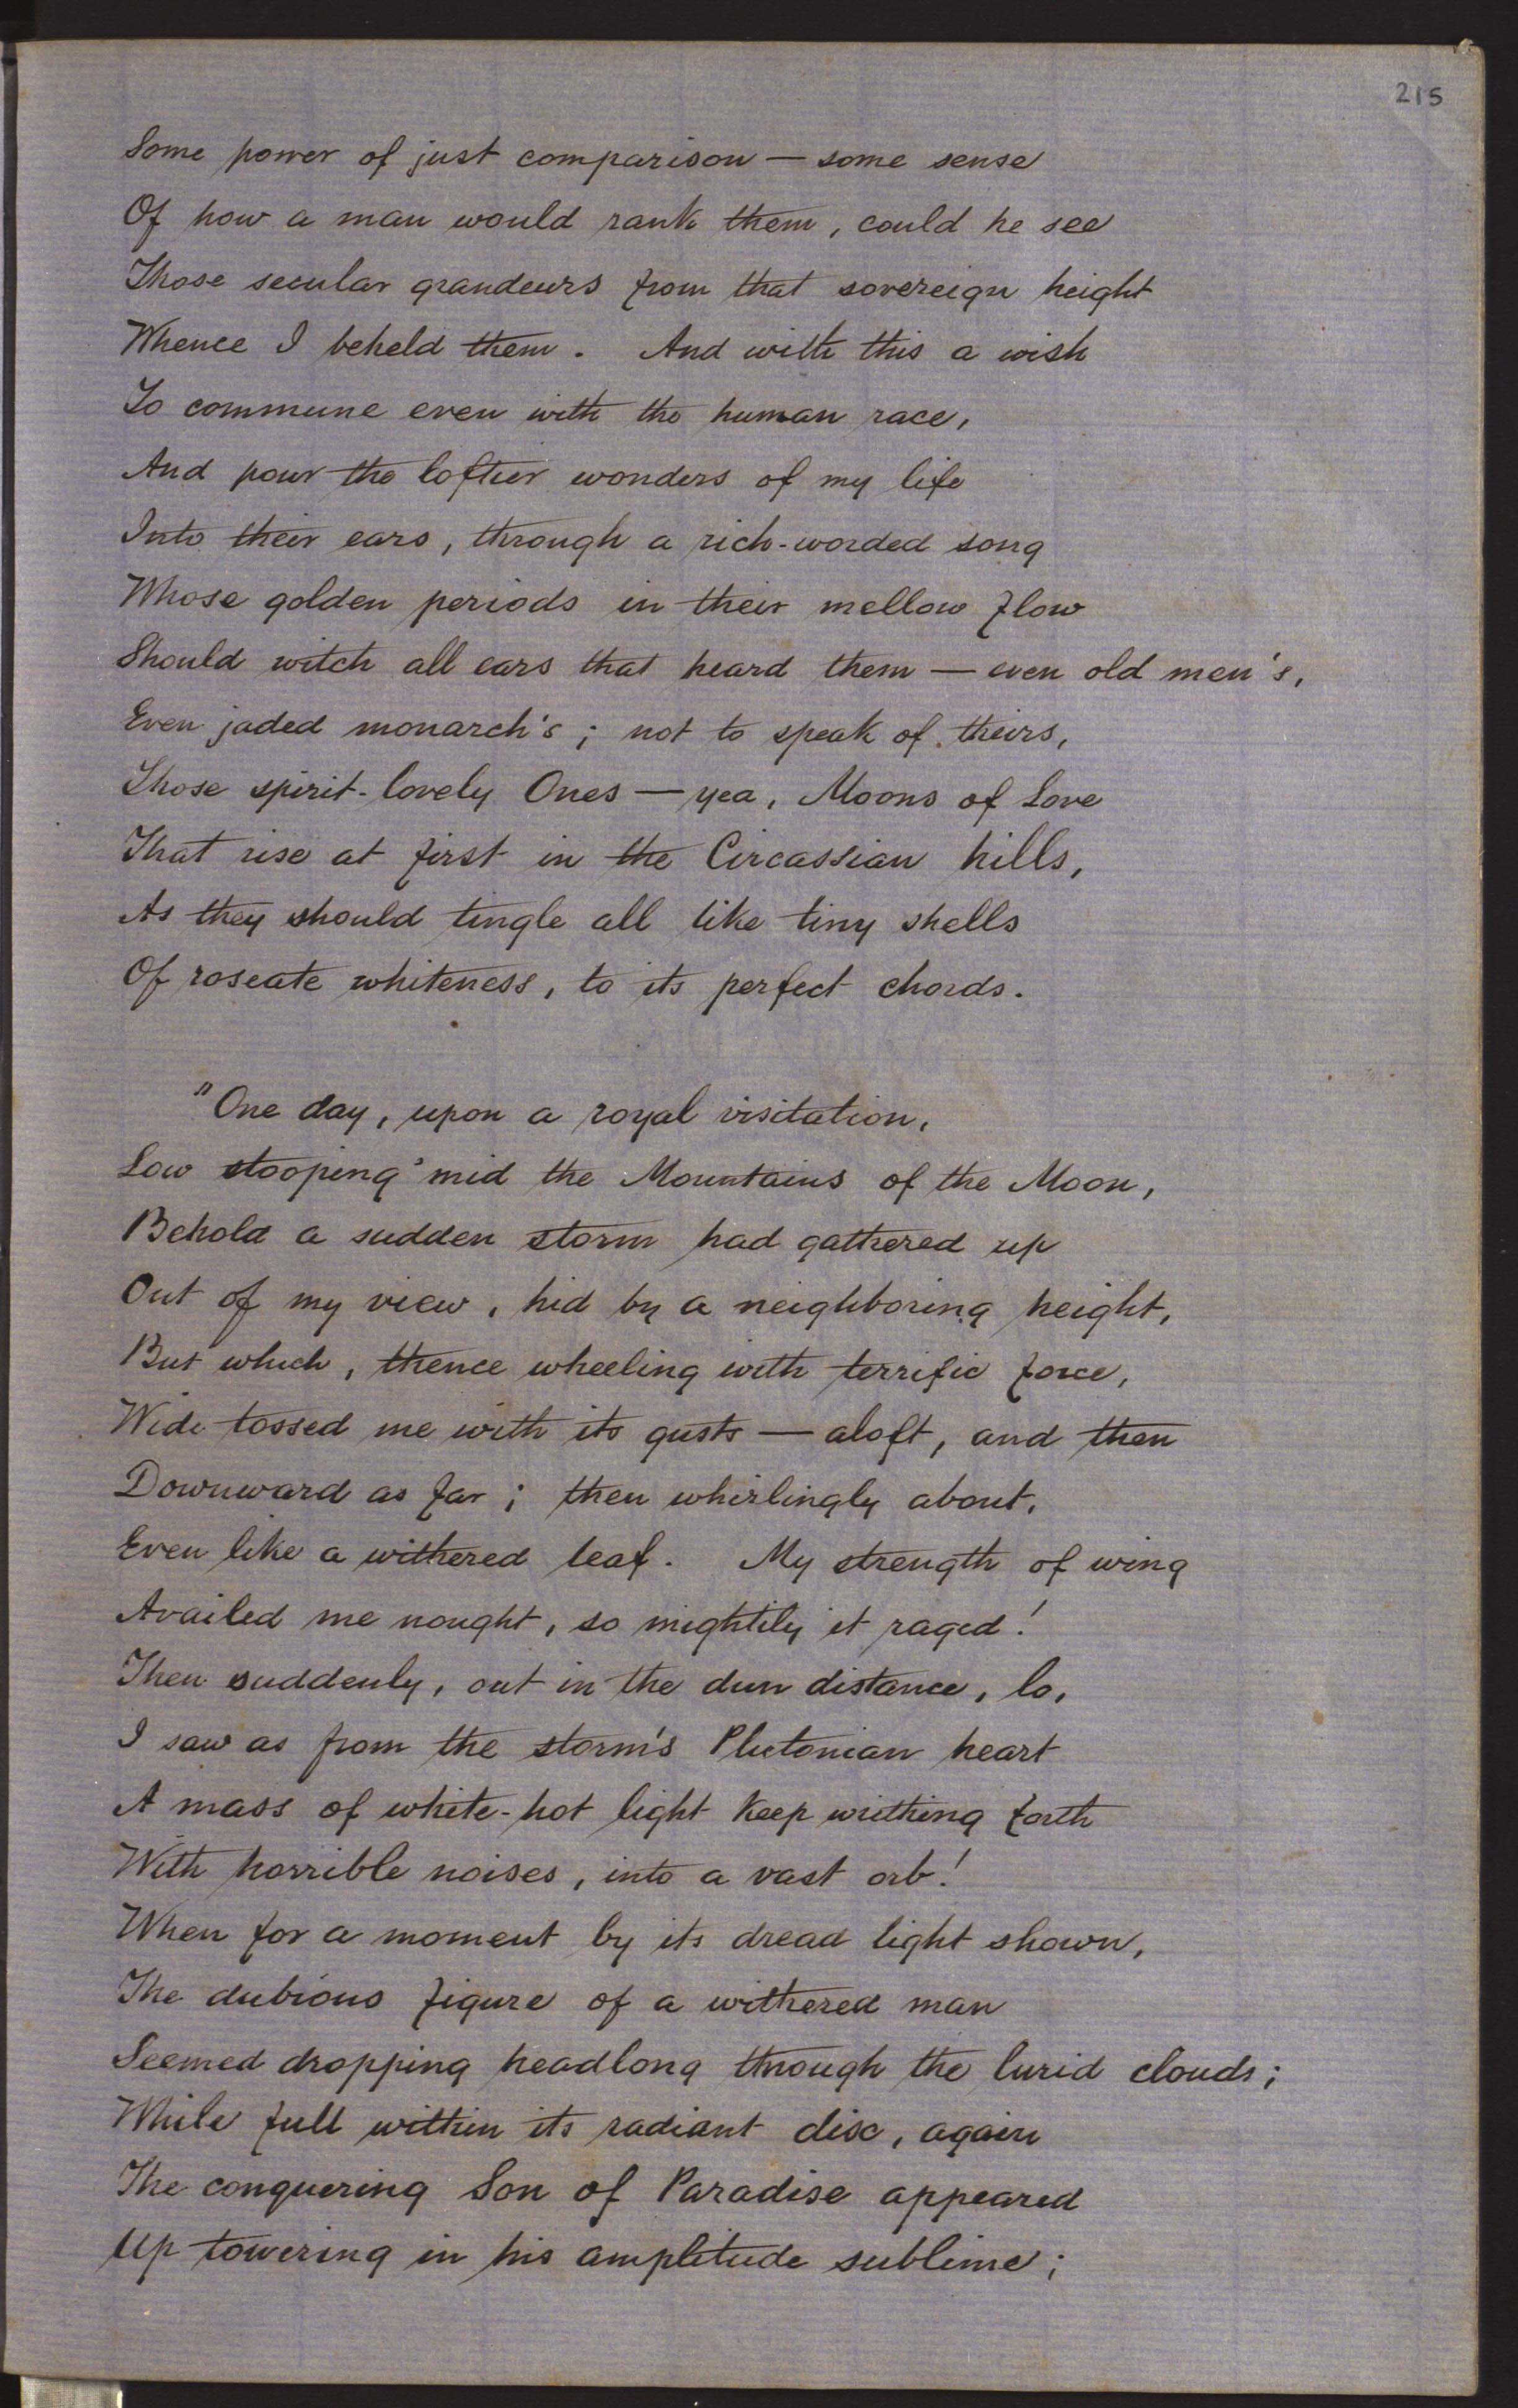 215
Some power of just comparison — some sense
Of how a man would rank them, could he see
Those secular grandeurs from that sovereign height
Whence I beheld them. And with this a wish
To commune even with the human race,
And pour the loftier wonders of my life
Into their ears, through a rich-worded song
Whose golden periods in their mellow flow
Should witch all ears that heard them — even old men's,
Even jaded monarch's; not to speak of theirs,
Those spirit-lovely Ones — yea, Moons of Love
That rise at first in the Circassian hills,
As they should tingle all like tiny shells
Of roseate whiteness, to its perfect chords.
"One day, upon a royal visitation,
Low stooping 'mid the Mountains of the Moon,
Behold a sudden storm had gathered up
Out of my view, hid by a neighboring height,
But which, thence wheeling with terrific force,
Wide tossed me with its gusts — aloft, and then
Downward as far; then whirlingly about,
Even like a withered leaf. My strength of wing
Availed me nought, so mightily it raged!
Then suddenly, out in the dun distance, lo,
I saw as from the storm's Plutonian heart
A mass of white-hot light keep writhing forth
With horrible noises, into a vast orb!
When for a moment by its dread light shown,
The dubious figure of a withered man
Seemed dropping headlong through the lurid clouds;
While full within its radiant disc, again
The conquering Son of Paradise appeared
Up towering in his amplitude sublime;